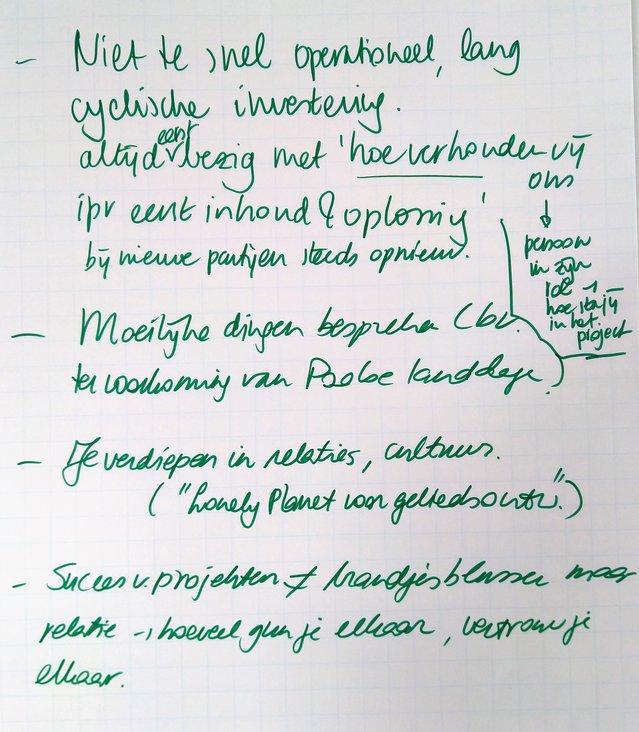 - Niet te snel operationeel, lang
cyclische investering.
altijd eerst bezig met 'hoe verhouden wij
ons
ipv eerst inhoud & oplossing'
bij nieuwe partijen steeds opnieuw.
↓
persoon
in zijn
rol →
hoe sta jij
in het
project
- Moeilijke dingen bespreken (bv.
ter voorkoming van Poolse landdage.)
- Je verdiepen in relaties, cultuur.
("Lonely Planet voor gebiedsontw.")
- Succes v. projekten ≠ brandjes blussen maar
relatie → hoeveel gun je elkaar, vertrouw je
elkaar.